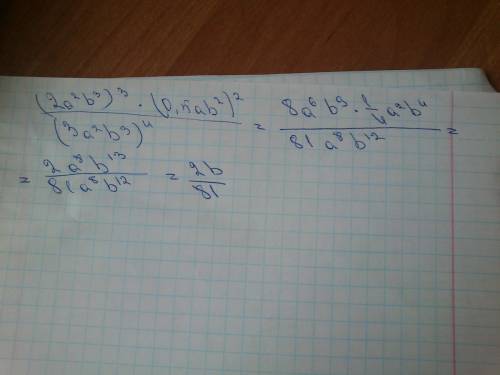 (2a²b³)³ · (0,5ab²)² / (3a²b³)⁴ = 8a⁶b⁹ · 1/4 a²b⁴ / 81a⁸b¹² =
= 2a⁸b¹³ / 81a⁸b¹² = 2b / 81